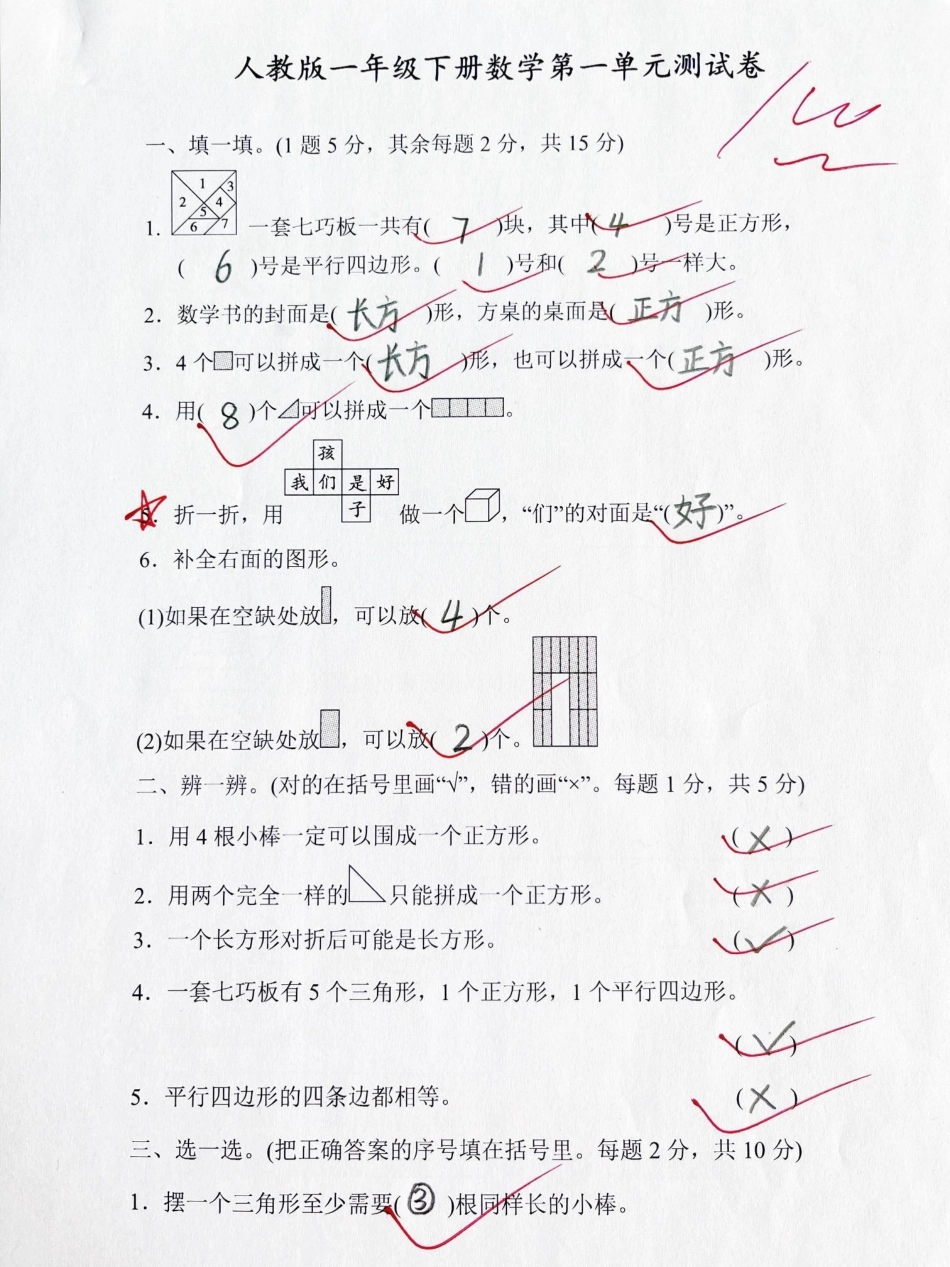 人教版一年级下册数学第一单元测试卷
100
一、填一填。(1 题 5 分，其余每题 2 分，共 15 分)
1 2 3 4 5 6 7
1. 一套七巧板一共有( 7 )块，其中( 4 )号是正方形，
( 6 )号是平行四边形。( 1 )号和( 2 )号一样大。
2．数学书的封面是( 长方 )形，方桌的桌面是( 正方 )形。
3．4 个可以拼成一个( 长方 )形，也可以拼成一个( 正方 )形。
4．用( 8 )个可以拼成一个。
孩
我 们 是 好
子
5．折一折，用 做一个，“们”的对面是“( 好 )”。
6．补全右面的图形。
(1)如果在空缺处放，可以放( 4 )个。
(2)如果在空缺处放，可以放( 2 )个。
二、辨一辨。(对的在括号里画“√”，错的画“×”。每题 1 分，共 5 分)
1．用 4 根小棒一定可以围成一个正方形。 ( × )
2．用两个完全一样的只能拼成一个正方形。 ( × )
3．一个长方形对折后可能是长方形。 ( √ )
4．一套七巧板有 5 个三角形，1 个正方形，1 个平行四边形。
( √ )
5．平行四边形的四条边都相等。 ( × )
三、选一选。(把正确答案的序号填在括号里。每题 2 分，共 10 分)
1．摆一个三角形至少需要( ③ )根同样长的小棒。